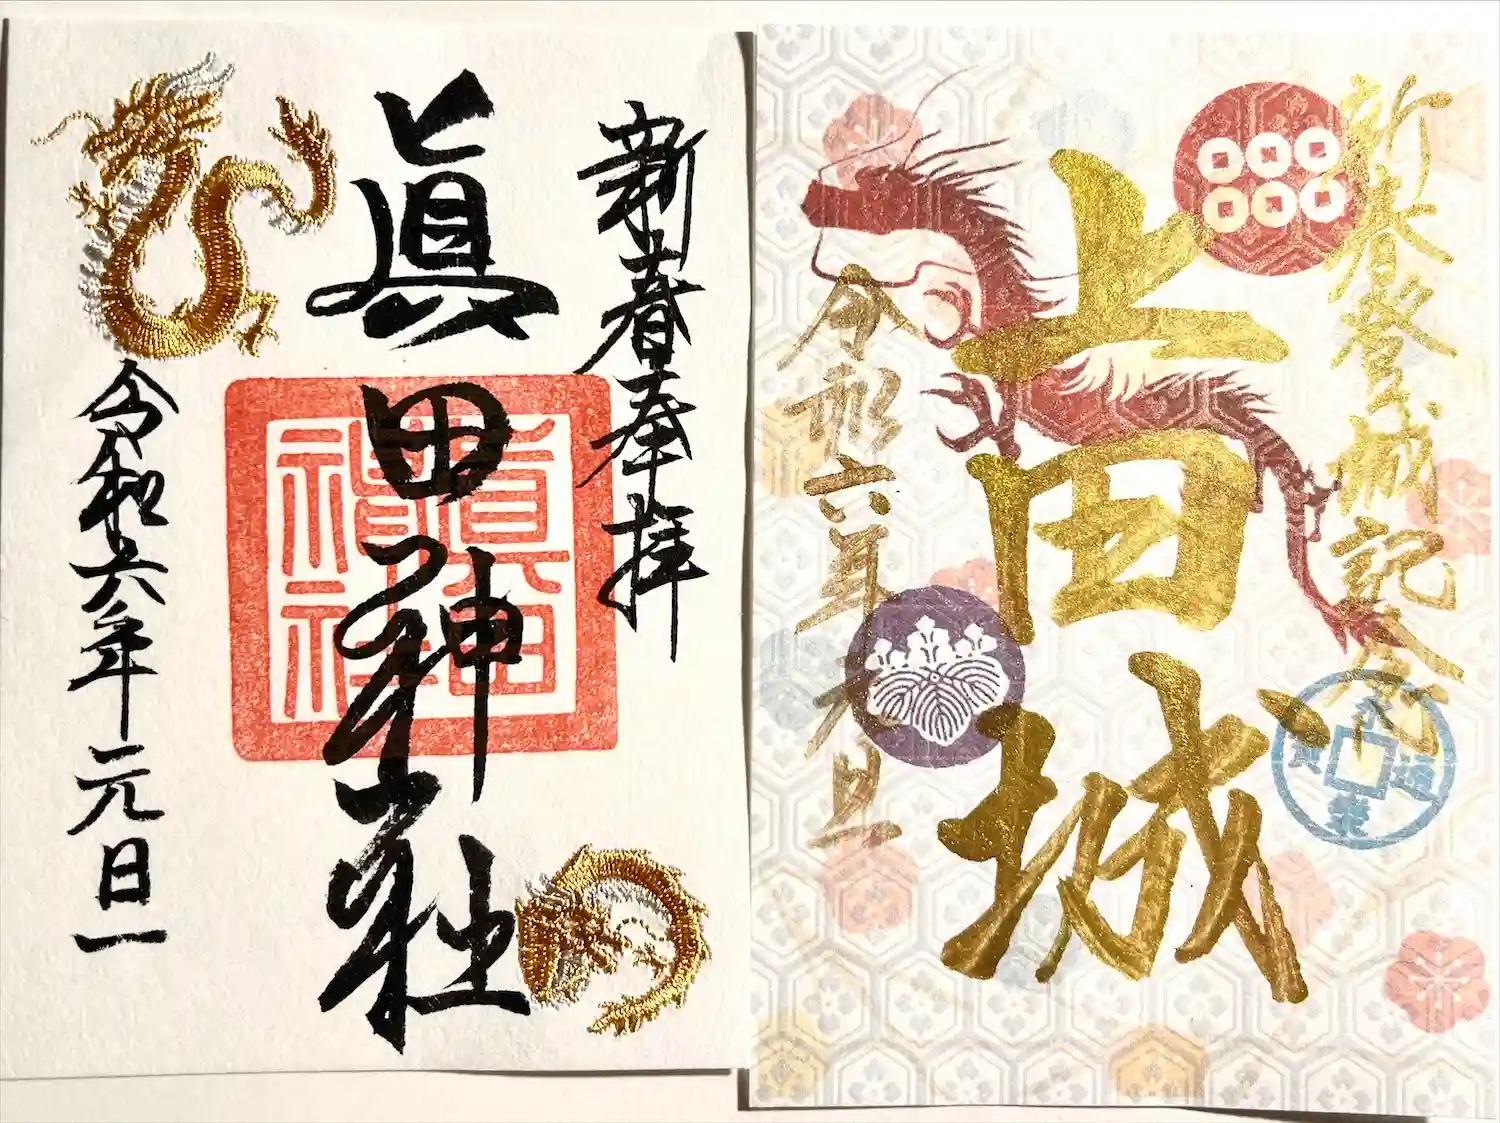 新春奉拝
眞田神社
眞田
神社
令和六年元日一
新春登城記念
上田城
令和六年元旦
永楽通寳